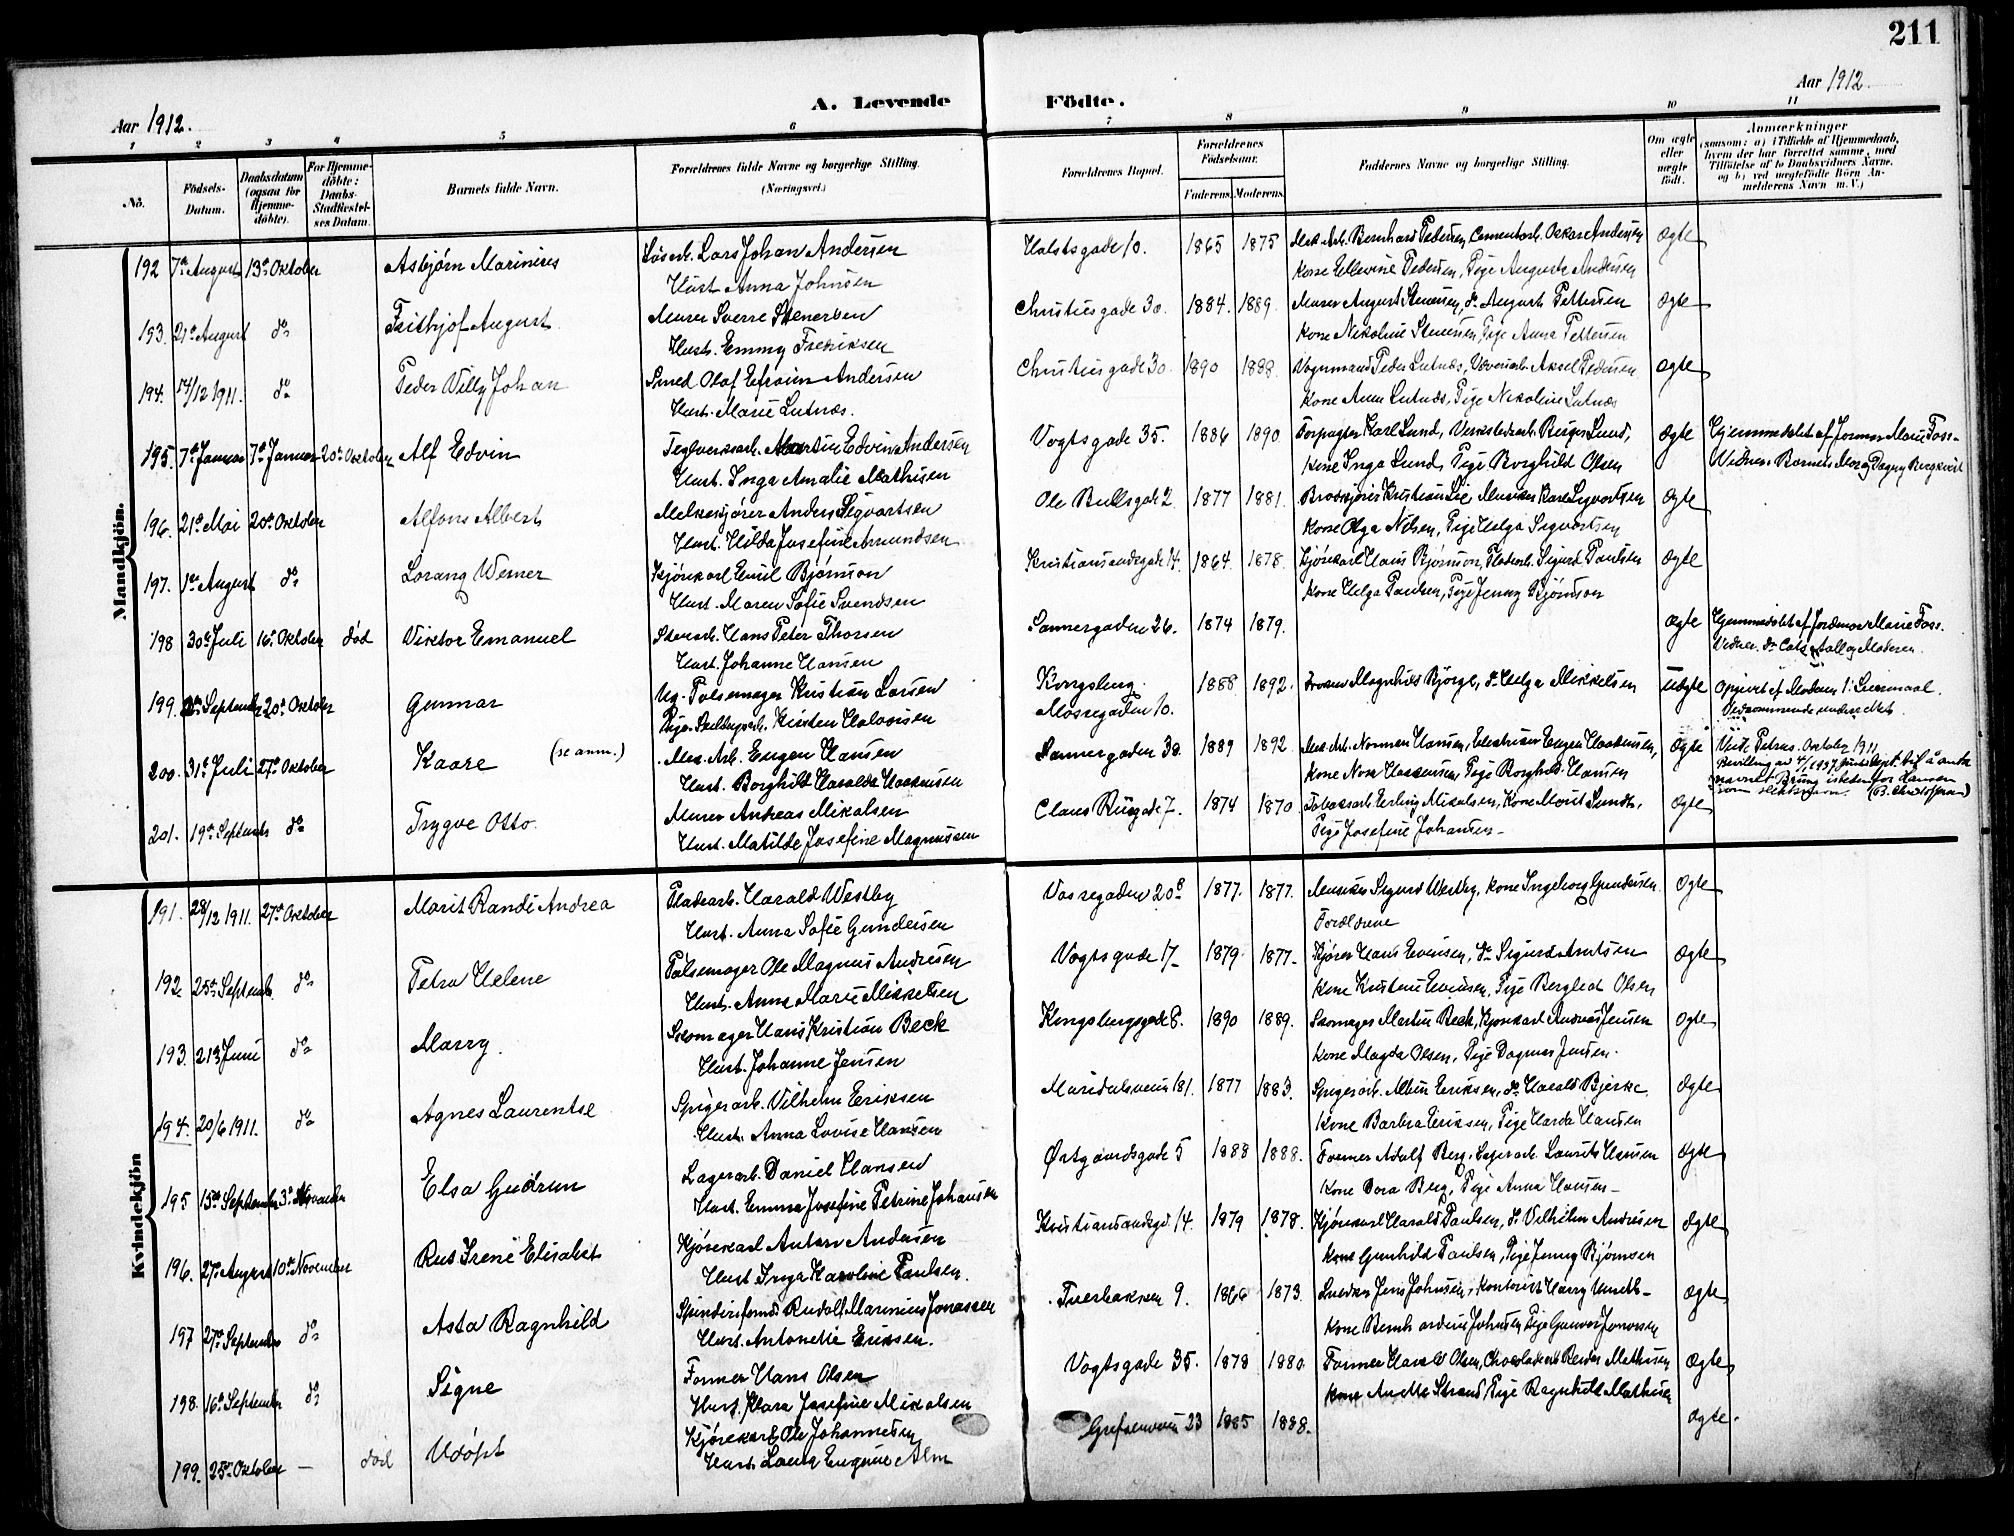 211
Aar 1912.
A. Levende Födte.
Aar 1912.
1 2 3 4 5 6 7 8 9 10 11
No.
Födsels-Datum.
Daabsdatum (ogsaa for Hjemme-döbte).
For Hjemme-döbte: Daabs-Stadfæstel-ses Datum.
Barnets fulde Navn.
Forældrenes fulde Navne og borgerlige Stilling. (Næringsvei.)
Forældrenes Bopæl.
Forældrenes Födselsaar.
Faderens. Moderens.
Faddernes Navne og borgerlige Stilling.
Om ægte eller uægte født.
Anmærkninger (saasom: a) i Tilfælde af Hjemmedaab, hvem der har forrettet samme, med Tilföielse af to Daabsvidners Navne. og b) ved uægtefödte Börn An-melderens Navn m. V.)
Mandkjön.
192 7de August 13de Oktober Asbjørn Marinius Lars Johan Andersen Holstsgade 10. 1865 1875 Mek. Arb. Bernhard Pedersen, Cementarb. Oskar Andersen ægte
Hust. Anna Johnsen Kone Ellevine Pedersen, Pige Augusta Andersen
193. 21de August do Frithjof August Murer Sverre Stenersen Christiesgade 30. 1884. 1889. Murer August Stenersen, do August Pettersen ægte
Hust. Emmy Fredriksen Kone Nikoline Stenersen, Pige Anna Pettersen
194. 14/12 1911. do Peder Villy Johan Smed Olaf Efraim Andersen Christiesgade 30. 1890 1888. Vognmand Peder Lutnæs, Væveriarb. Aksel Pedersen ægte
Hust. Marie Lutnæs. Kone Anna Lutnæs, Pige Nikoline Lutnæs
195. 7de Januar 7de Januar 20de Oktober Alf Edvin Teglverksarb. Martin Edvin Andersen Vogtsgade 35. 1886 1890 Forpagter Karl Lund, Verkstedarb. Birger Lund, ægte Hjemmedøbt af Jormor Marie Foss.
Hust. Inga Amalie Mathisen Kone Inga Lund, Pige Borghild Olsen Vidner: Barnets Mor og Dagny Bergkvist
196. 21de Mai 20de Oktober Alfons Albert Melkekjører Anders Sigvartsen Ole Bullsgade 2 1877 1881. Brødkjører Kristian Lie, Musiker Karl Sigvartsen ægte
Hust. Hilda Josefine Amundsen Kone Olga Nilsen, Pige Helga Sigvartsen
197. 1ste August do Lorang Werner Kjørekarl Emil Bjørnson Kristiansandsgade 14. 1864. 1878. Kjørekarl Hans Bjørnson, Pladearb. Sigurd Paulsen ægte
Hust. Maren Sofie Svendsen Kone Helga Paulsen, Pige Jenny Bjørnson
198 30te Juli 16de Oktober død Viktor Emanuel Stenarb. Hans Peter Thorsen Sannergaden 26. 1874 1879. ægte Hjemmedøbt af Jordmor Marie Foss.
Hust. Johanne Hansen Vidner: do Cath. Aall og Moderen.
199. September 20de Oktober Gunnar Ug. Pølsemager Kristian Larsen Kongsberg. 1888 1892. Fruen Magnhild Bjørge, do Helga Mikkelsen uægte Opgivet af Moderen i Lærermaal.
Pige Kirsten Halvorsen Mossegaden 10. Vedkommende underrettet.
200. 31te Juli 27de Oktober Kaare (se anm.) Mek. Arb. Eugen Hansen Sannergaden 30. 1889 1892 Mek. Art. Norman Hansen, Electriker Eugen Haakensen, ægte Viet Petrus. Oktober 1911
Hust. Borghild Haralda Haakensen Kone Nora Haakensen, Pige Borghild Hansen
201. 19de September do Trygve Otto. Murer Andreas Mikalsen Claus Riisgade 7. 1874 1870. Tobaksarb. Erling Mikalsen, Kone Marit Sundt, ægte
Hust. Matilde Josefine Magnussen Pige Josefine Johansen
Kvindekjön
191. 28/12 1911. 27de Oktober Marit Randi Andrea Pladearb. Harald Westby Vossegaden 20b 1877. 1877. Musiker Sigurd Westby, Kone Ingeborg Gundersen ægte
Hust. Anna Sofie Gundersen Forældrene
192. 25de Septemb. do Petra Helene Pølsemager Ole Magnus Andresen Vogtsgade 17 1879. 1877. Kjører Hans Evensen, do Sigurd Arntsen ægte
Hust. Anna Marie Mikkelsen Kone Kristine Evensen, Pige Bergliot Olsen
193. 213 Juni do Marry. Skomager Hans Kristian Beck Kongsbergsgade 8. 1890 1889. Skomager Martin Beck, Kjørekarl Andreas Jensen ægte
Hust. Johanne Jensen Kone Magda Olsen, Pige Dagmar Jensen.
194. 20/6 1911. do Agnes Laurentse Spigerarb. Vilhelm Eriksen Maridalsveien 181. 1877 1883. Spigerarb. Albin Eriksen, do Harald Bjerke ægte
Hust. Anna Lovise Hansen Kone Barbra Eriksen, Pige Harda Hansen
195 15de September 3de November Elsa Gudrun Lagerarb. Daniel Hansen Østgaardsgade 5 1888 1888. Former Adolf Berg, Lagerarb. Laurits Hansen ægte
Hust. Emma Josefine Petrine Johansen Kone Dora Berg, Pige Anna Hansen
196. 27de August 10de November Rut Irene Elisabet Kjørekarl Anton Andersen Kristiansandsgd. 14. 1879 1878. Kjørekarl Harald Paulsen, do Vilhelm Andresen ægte
Hust. Inga Karoline Paulsen. Kone Gunhild Paulsen, Pige Jenny Bjørnsen
197 27de September do Asta Ragnhild Spinderiformd. Rudolf Marinius Jonassen 9. 1866 1873. Snedker Jens Johnsen, Kontorist Harry ægte
Hust. Antonette Eriksen. Kone Bernhardine Johnsen, Pige Gunvor Jonassen
198. 16de September do Signe Former Hans Olsen Vogtsgade 35. 1878 1880. Former Harald Olsen, Chocoladearb. Reidar Mathisen ægte
Hust. Klara Josefine Mikalsen Kone Anette Strand, Pige Ragnhild Mathisen
199. 25de Oktober – død Udøpt Kjørekarl Ole Johannesen Grefsenveien 23 1885 1888. ægte.
Hust. Laura Eugenie Alm